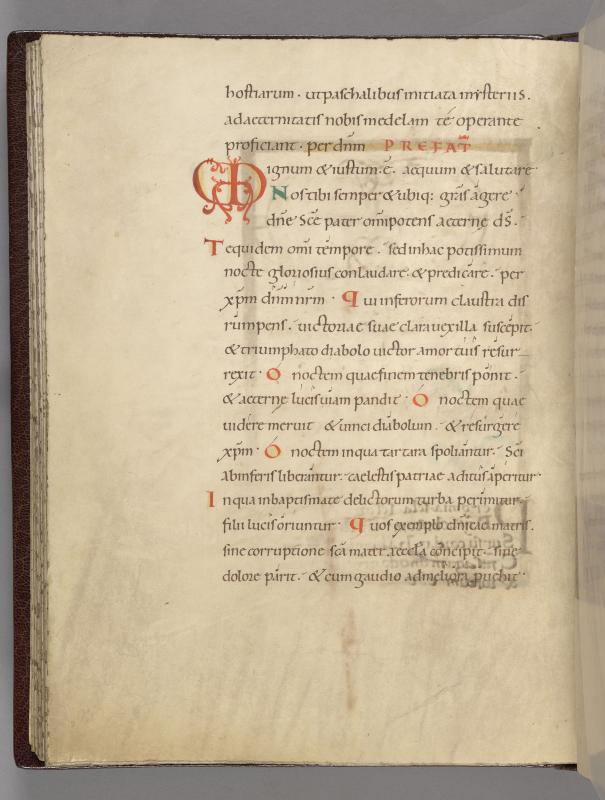 hostiarum · ut paschalibus initiata mysteriis ·
ad aeternitatis nobis medelam te operante
proficiant · per dn̄m PREFAT̄
Dignum & iustum · ē · aequum & salutare
Nos tibi semper & ubiq: gr̄as agere
dn̄e sc̄e pater om̄ipotens aeterne d̄s ·
Te quidem om̄i tempore · sed in hac potissimum
nocte gloriosius conlaudare · & predicare · per
xp̄m dn̄m nr̄m · Qui inferorum claustra dis
rumpens · uictoriae suae clara uexilla suscepit ·
& triumphato diabolo uictor a mortuis resur
rexit · O noctem quae finem tenebris ponit ·
& aeterne lucis uiam pandit · O noctem quae
uidere meruit & uinci diabolum · & resurgere
xp̄m · O noctem in qua tartara spoliantur · Sc̄i
ab inferis liberantur · caelestis patriae aditus aperitur ·
In qua in baptismate delictorum turba perimitur ·
filii lucis oriuntur · Quos exemplo dn̄icae matris ·
sine corruptione sc̄a mater aeccla concipit · sine
dolore parit · & cum gaudio ad meliora puehit ·